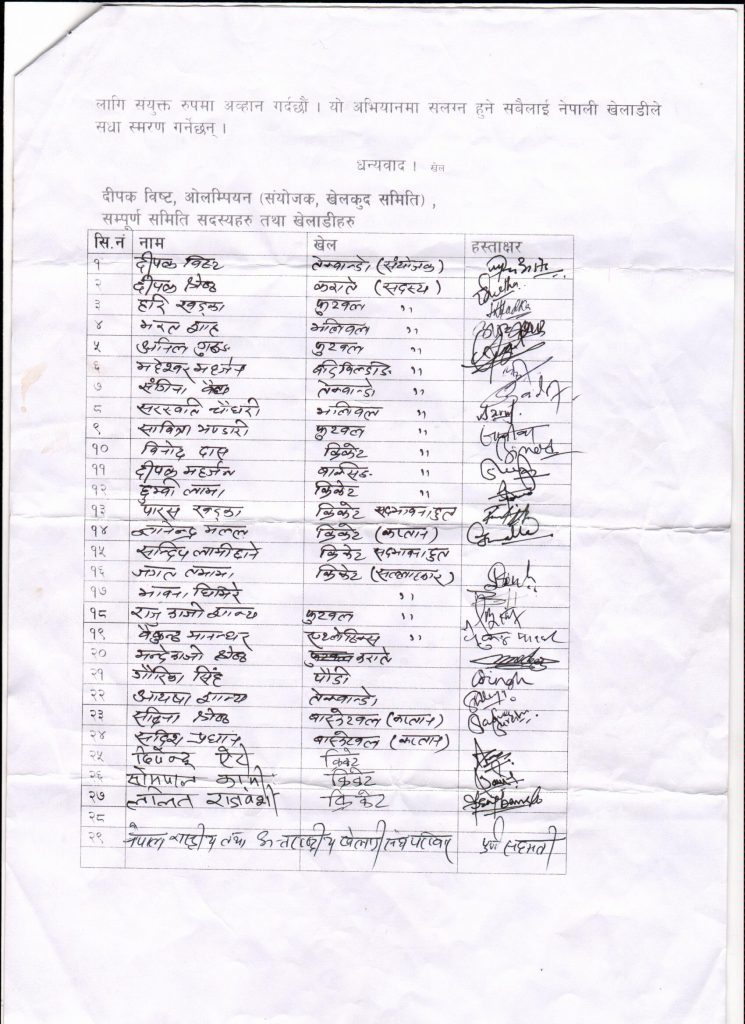 लागि सयुक्त रुपमा अव्हान गर्दछौं । यो अभियानमा सलग्न हुने सबैलाई नेपाली खेलाडीले
सधा स्मरण गर्नेछन् ।
धन्यवाद । खेल
दीपक विष्ट, ओलम्पियन (संयोजक, खेलकुद समिति) ,
सम्पूर्ण समिति सदस्यहरु तथा खेलाडीहरु
सि.नं नाम खेल हस्ताक्षर
१ दीपक विष्ट तेक्वान्दो (संयोजक)
२ दीपक श्रेष्ठ कराते (सदस्य)
३ हरि खड्का फुटवल ,,
४ भरत शाह भलिवल ,,
५ अनिल गुरुङ फुटवल ,,
६ महेश्वर महर्जन वडिविल्डीङ ,,
७ संगिना वैद्य तेक्वान्दो ,,
८ सरस्वति चौधरी भलिवल ,,
९ सावित्रा भण्डारी फुटवल ,,
१० विनोद दास क्रिकेट ,,
११ दीपक महर्जन वाक्सिङ ,,
१२ लामा क्रिकेट ,,
१३ पारस खड्का क्रिकेट सदभावना दुत
१४ ज्ञानेन्द्र मल्ल क्रिकेट (कप्तान)
१५ सन्दिप लामीछाने क्रिकेट सदभावना दुत
१६ जगत तमाता क्रिकेट (सल्लाहकार)
१७ भावना घिमिरे ,,
१८ राजु काजी शाक्य फुटवल ,,
१९ वैकुण्ठ मानन्धर एथ्लेटिक्स ,,
२० काजी श्रेष्ठ कराते
२१ गौरिका सिंह पौडी Singh
२२ आयषा शाक्य तेक्वान्दो
२३ सदिना श्रेष्ठ वास्केटवल (कप्तान)
२४ सदिश प्रधान वास्केटवल (कप्तान)
२५ दिपेन्द्र ऐरी क्रिकेट
२६ सोमपाल कामी क्रिकेट
२७ ललित राजवंशी क्रिकेट
२८
२९ नेपाल राष्ट्रीय तथा अन्तराष्ट्रीय खेलाडी संघ परिवार पुर्ण सहमती